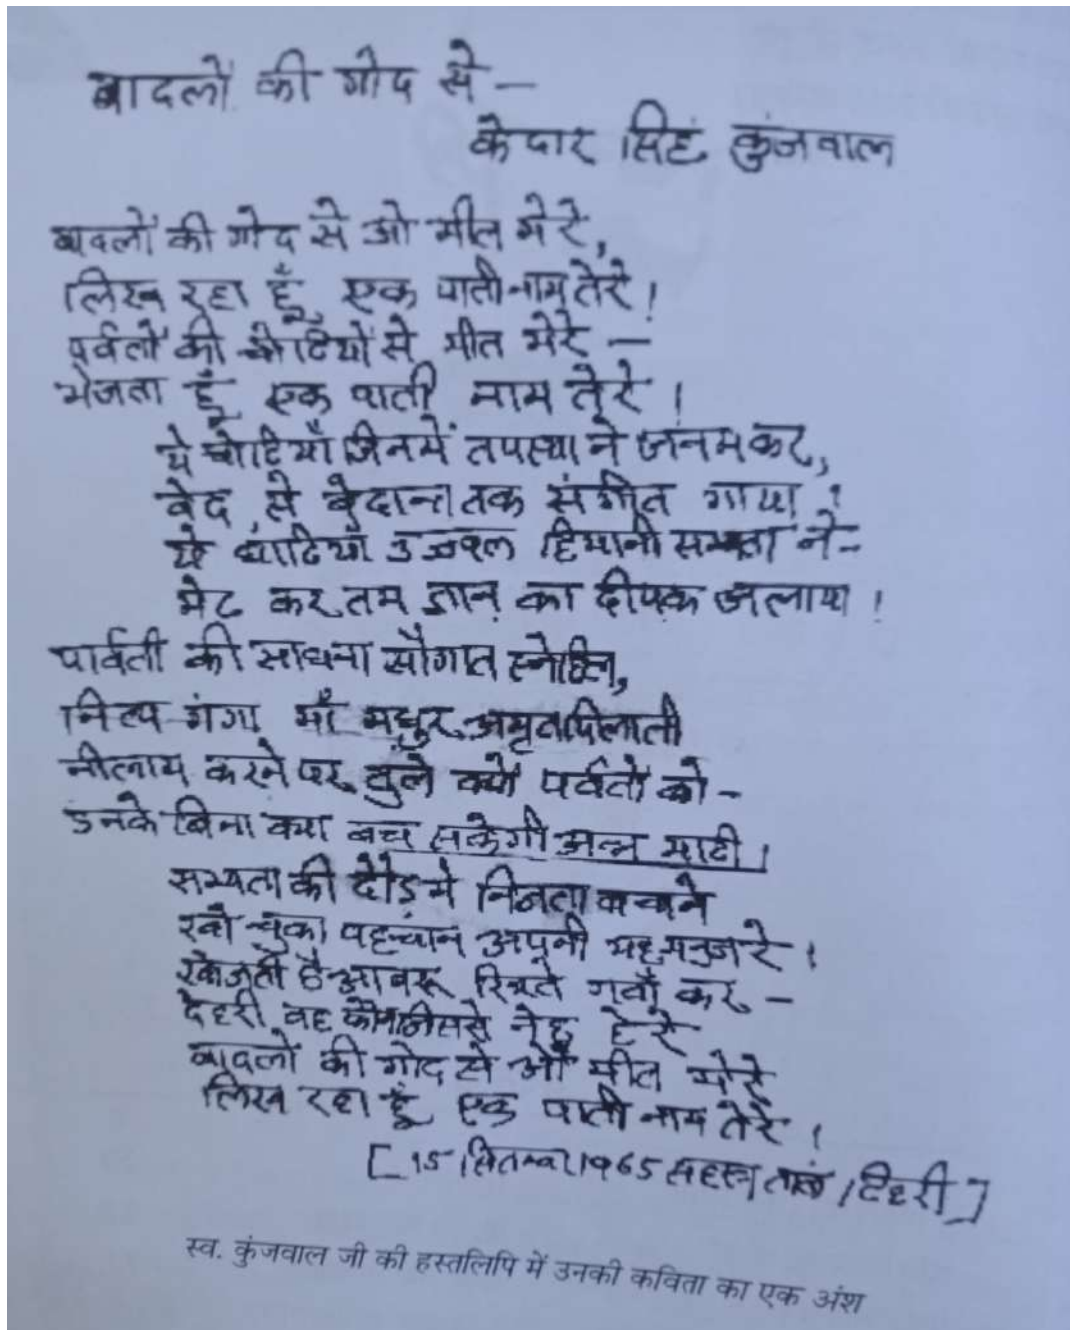 बादलों की गोद से —
केदार सिंह कुंजवाल
बादलों की गोद से ओ मीत मेरे,
लिख रहा हूँ एक पाती नाम तेरे!
पर्वतों की चोटियों से मीत मेरे —
भेजता हूँ एक पाती नाम तेरे!
ये चोटियाँ जिनमें तपस्या ने जनम कर,
वेद से वेदान्त तक संगीत गाया!
ये घाटियाँ उज्वल हिमानी सभ्यता ने -
मेट कर तम ज्ञान का दीपक जलाया!
पार्वती की साधना सौगात स्नेहिल,
नित्य गंगा माँ मधुर अमृत पिलाती
नीलाम करने पर तुले क्यों पर्वतों को -
इनके बिना क्या बच सकेगी अन्न माटी!
सभ्यता की दौड़ में निजता बचाने
खो चुका पहचान अपनी यह मनुज रे!
खोजती है आबरू रिश्ते गवाँ कर -
देहरी वह कौन जिससे नेह हेरे
बादलों की गोद से ओ मीत मेरे
लिख रहा हूँ एक पाती नाम तेरे!
[15 सितम्बर 1965 सहस्त्र ताल / टिहरी]
स्व. कुंजवाल जी की हस्तलिपि में उनकी कविता का एक अंश